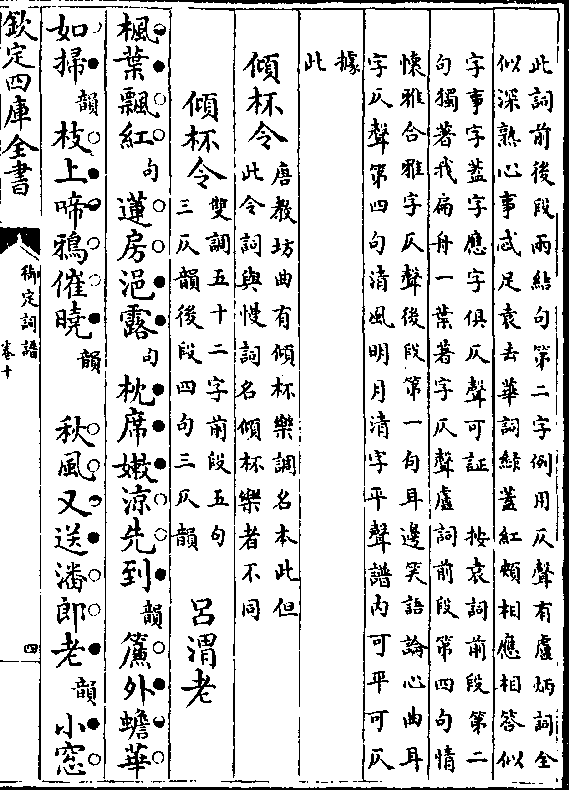 此詞前後段兩結句第二字例用仄聲有盧炳詞全
似深熟心事忒足袁去華詞緑蓋紅頰相應相答似
字事字蓋字應字俱仄聲可証　按袁詞前段第二
句獨著我扁舟一葉著字仄聲盧詞前段第四句情
懷雅合雅字仄聲後段第一句耳邊笑語論心曲耳
字仄聲第四句清風明月清字平聲譜内可平可仄
據此
傾杯令
唐教坊曲有傾杯樂調名本此但
此令詞與慢詞名傾杯樂者不同
傾杯令
雙調五十二字前段五句
三仄韻後段四句三仄韻
呂渭老
楓葉飄紅句蓮房浥露句枕席嫩涼先到韻簾外蟾華
如掃韻枝上啼鴉催曉韻　秋風又送潘郎老韻小窓
欽定四庫全書
御定詞譜
卷十
四